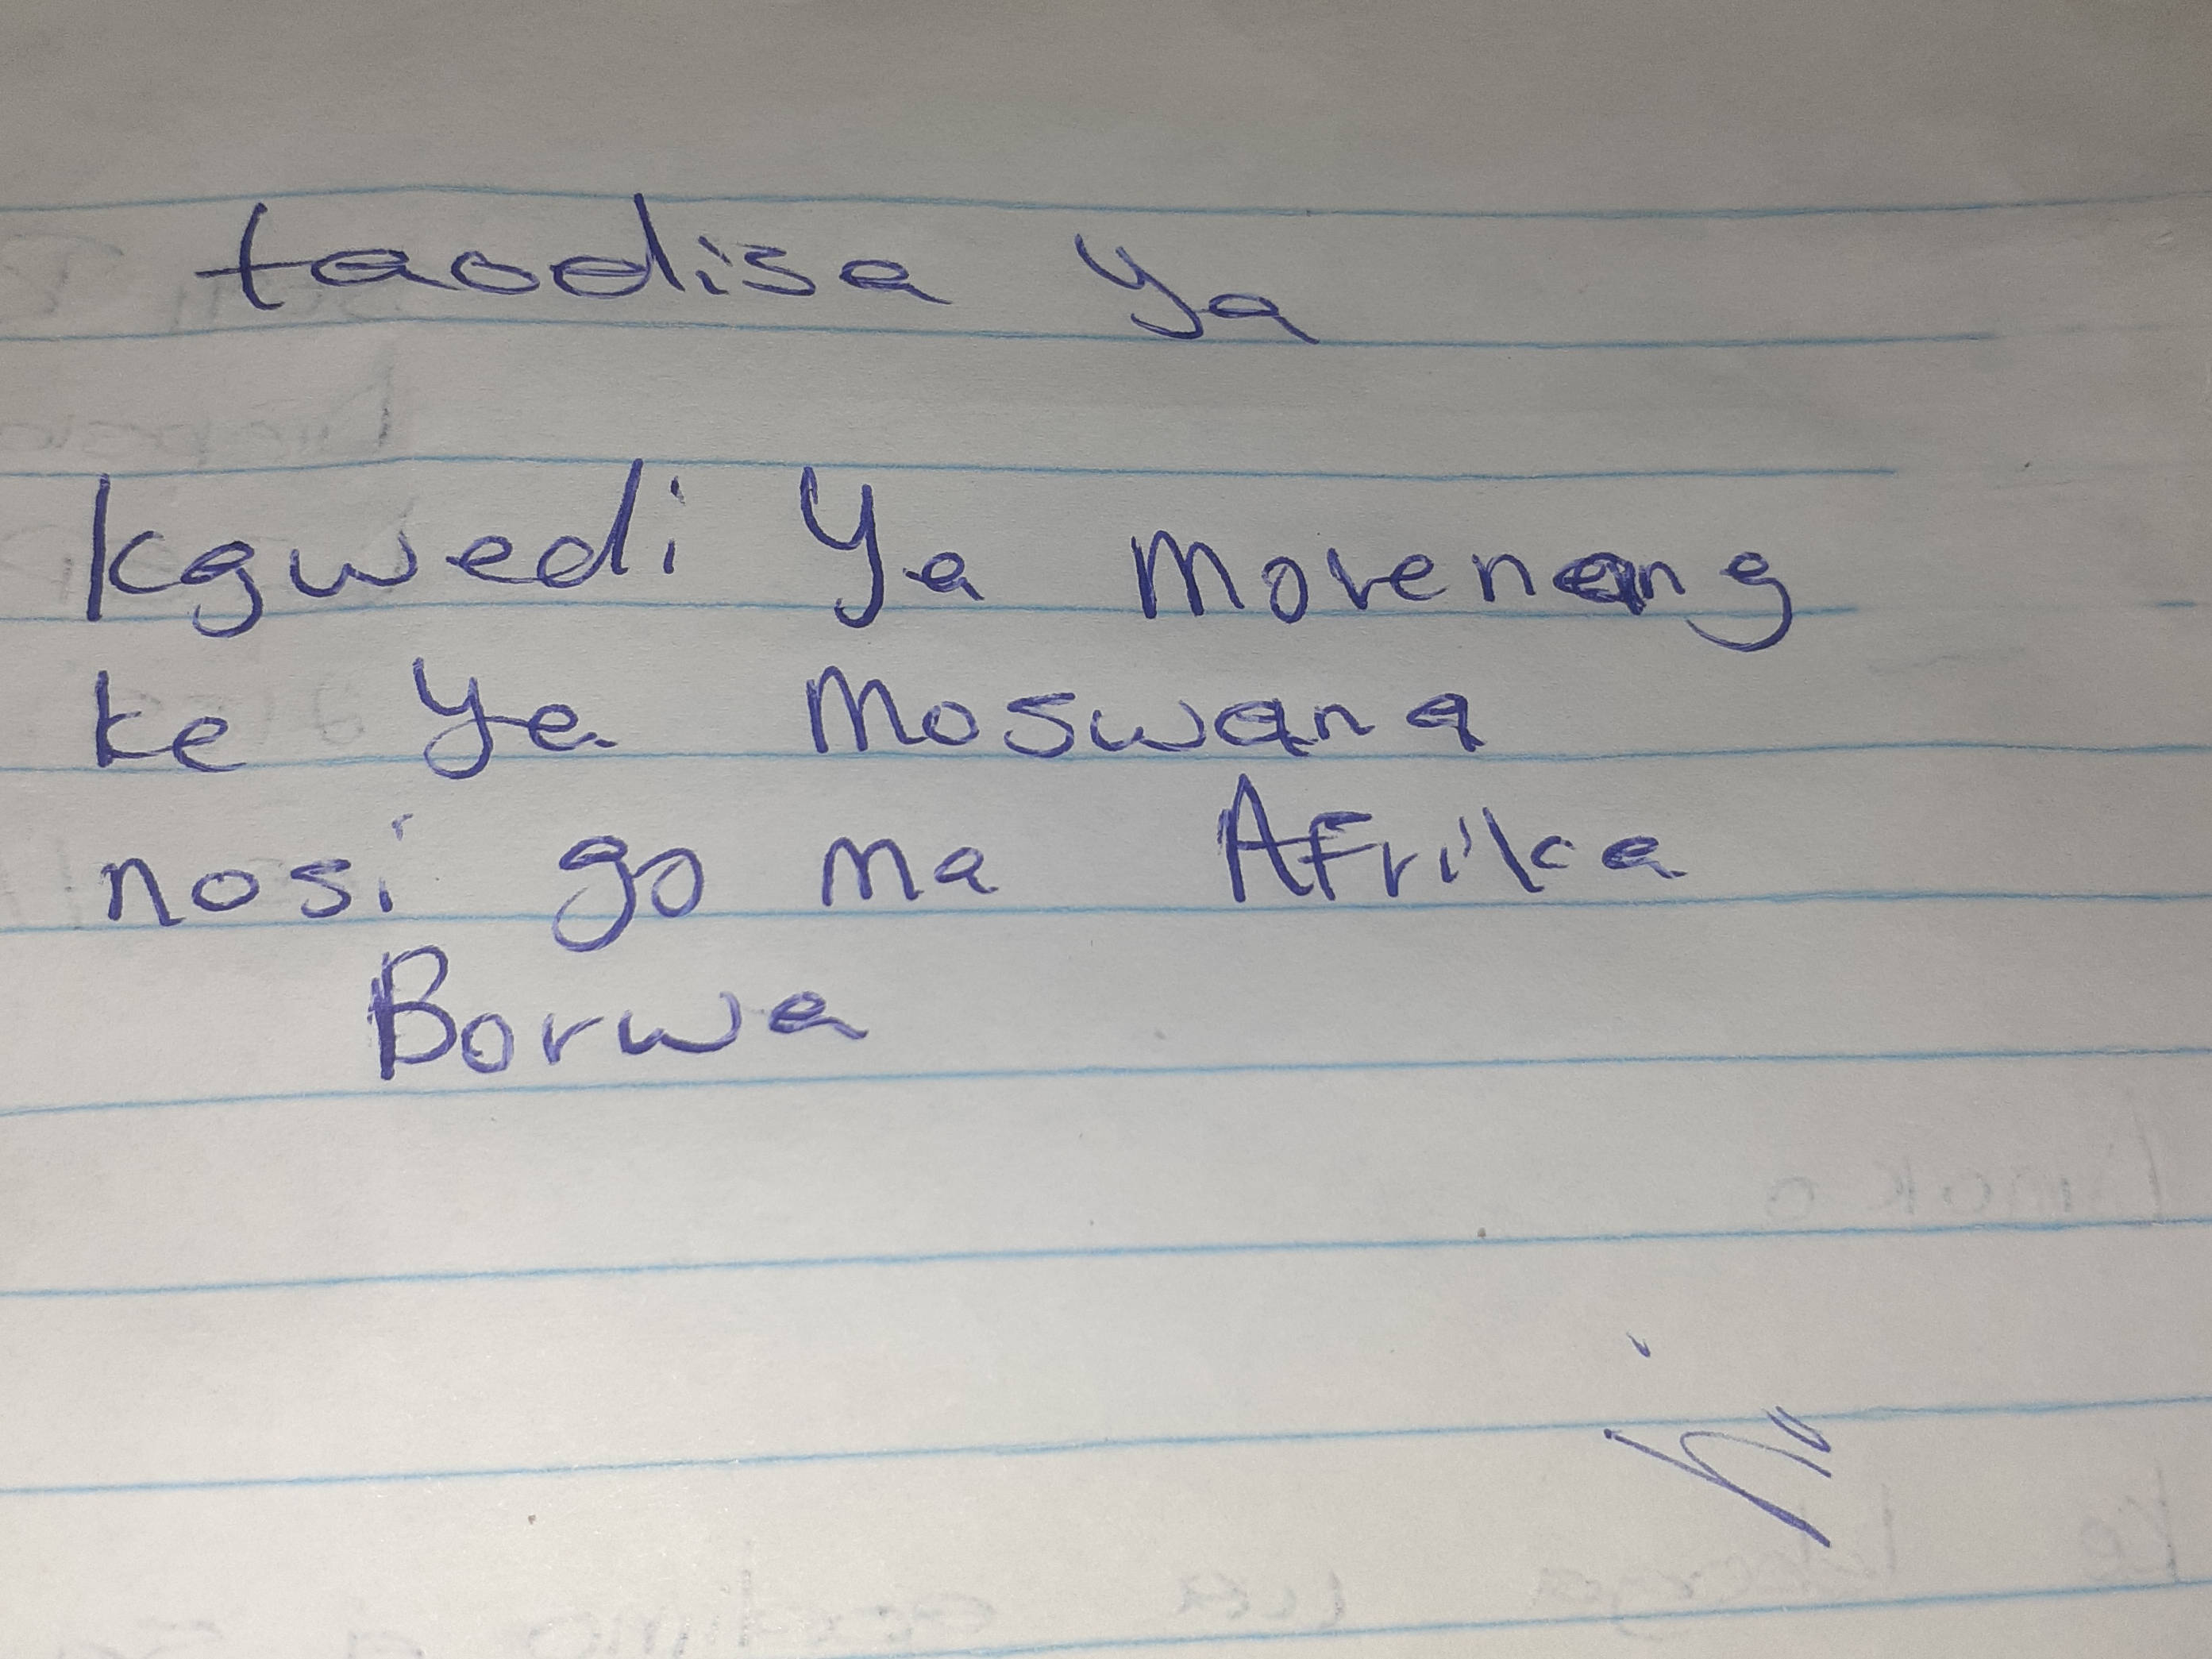 taodisa ya
Kgwedi Ya Morenang
ke Ya Moswana
nosi go ma Afrika
Borwa